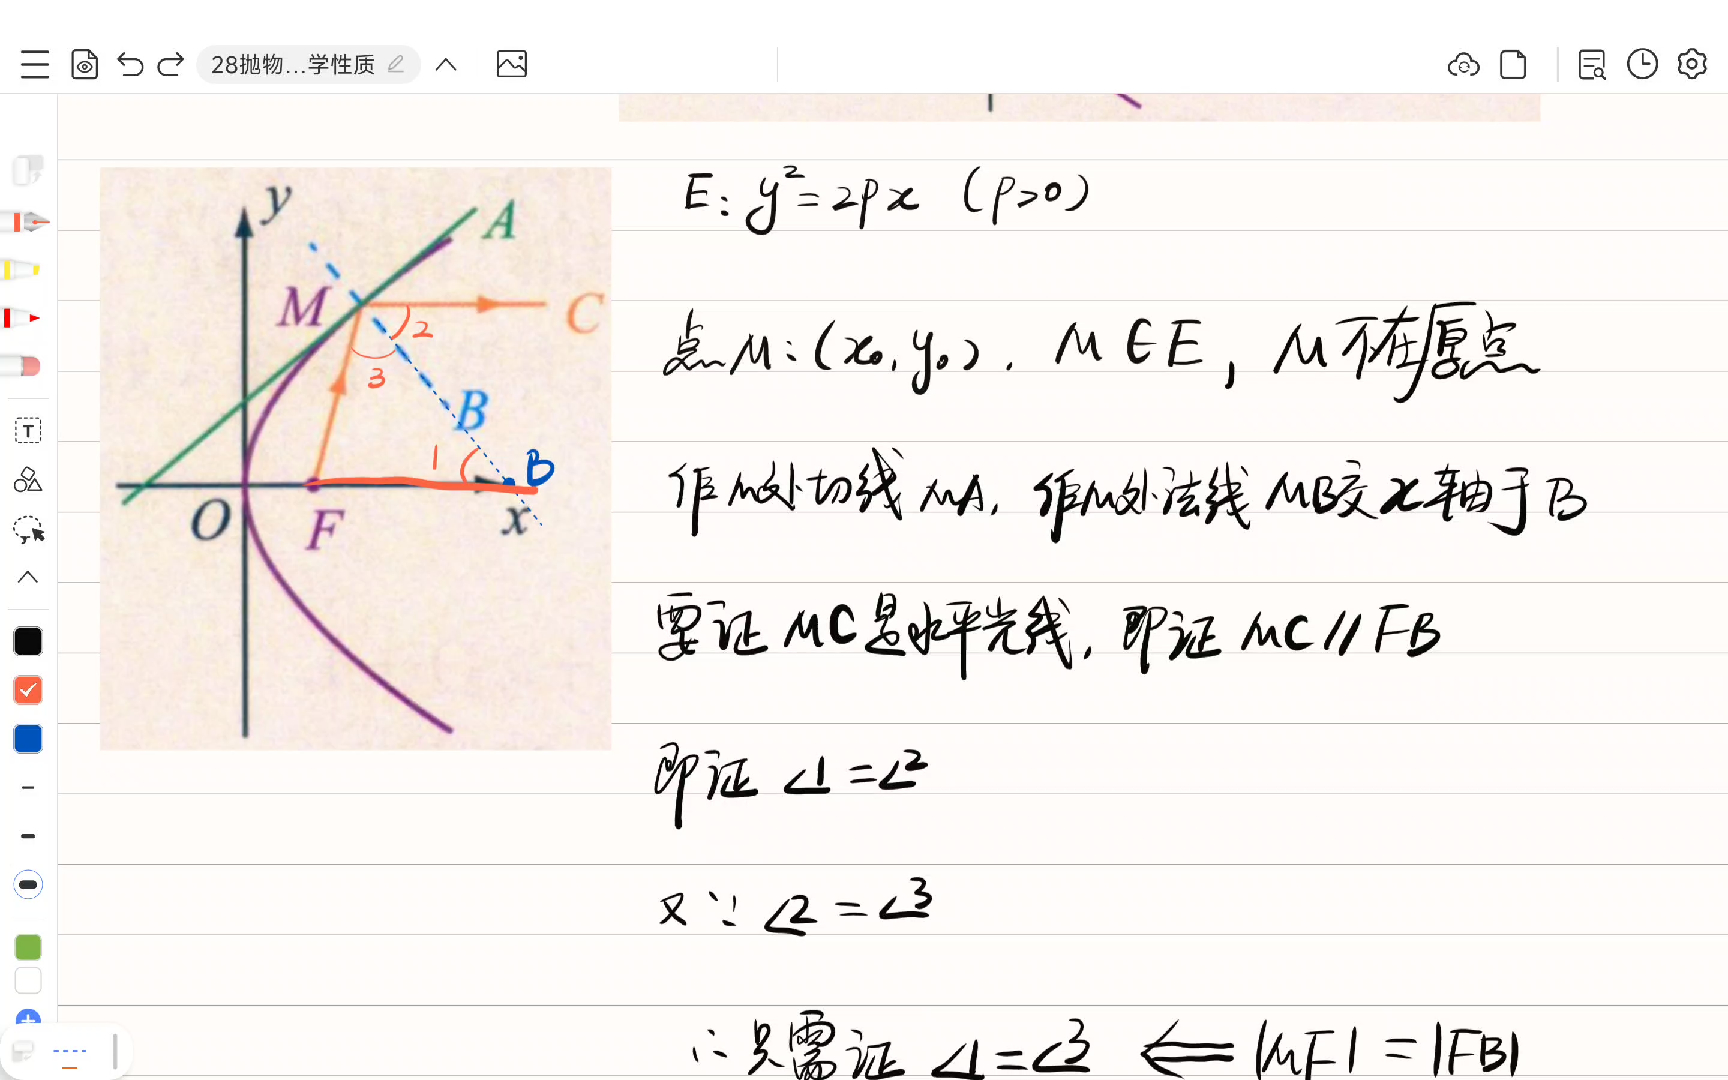 28抛物...学性质
E: y²=2px (p>0)
点M:(x₀,y₀). M∈E, M不在原点
作M处切线MA, 作M处法线MB交x轴于B
要证MC是水平光线, 即证MC∥FB
即证∠1=∠2
又∵∠2=∠3
∴只需证∠1=∠3 ⇐ |MF|=|FB|
y
A
M
C
2
3
B
1
B
O
F
x
T